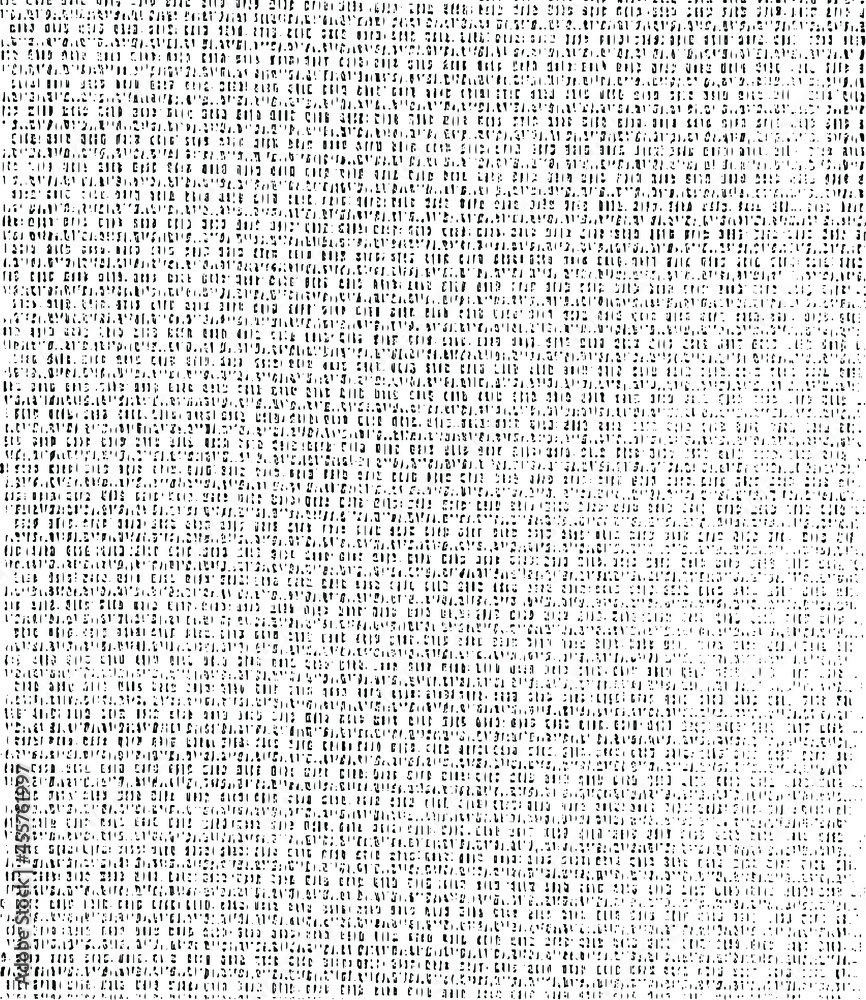 Adobe Stock | #435781997